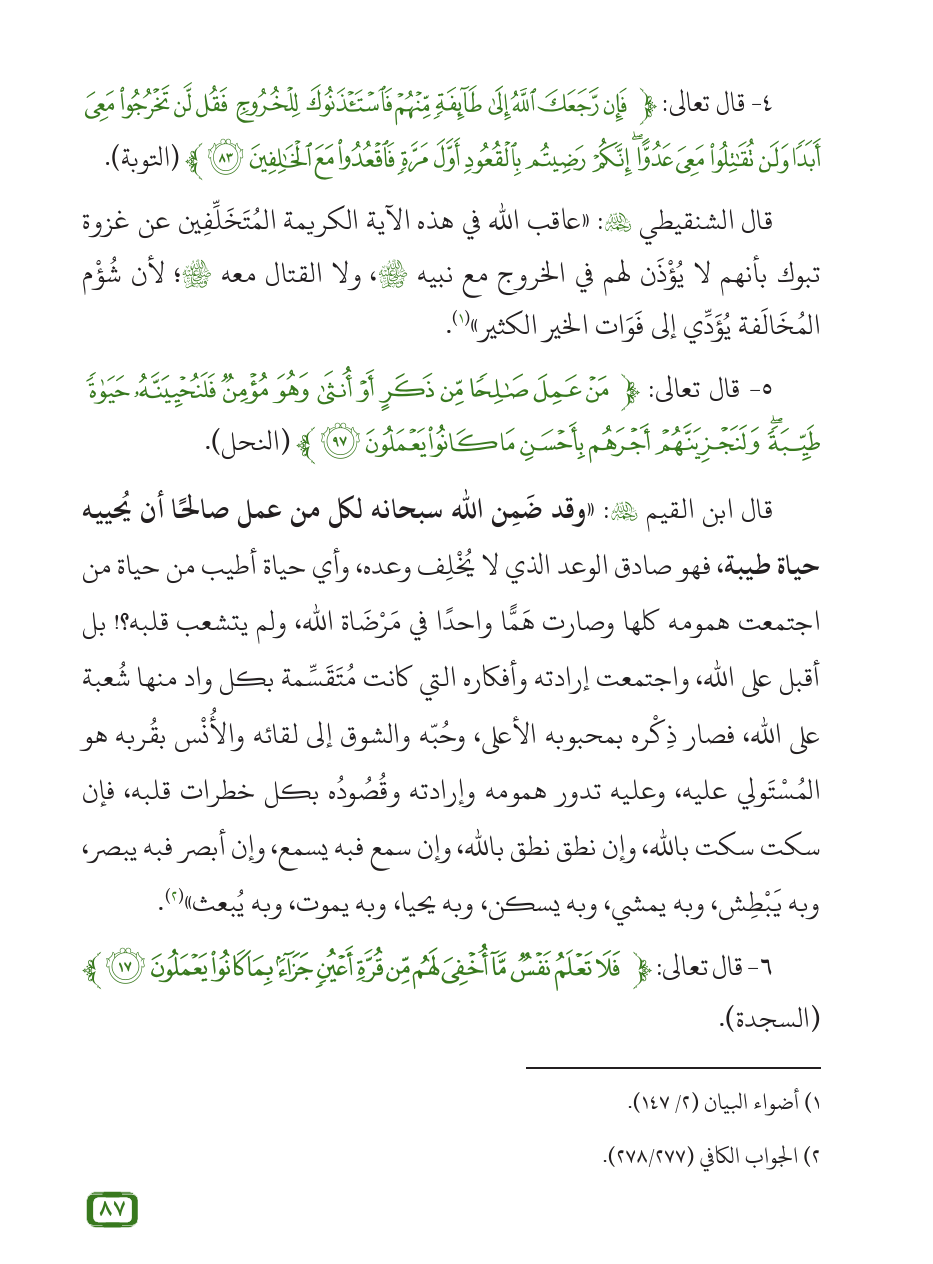 ٤- قال تعالى: ﴿ فَإِن رَّجَعَكَ ٱللَّهُ إِلَىٰ طَآئِفَةٍ مِّنْهُمْ فَٱسْتَـْٔذَنُوكَ لِلْخُرُوجِ فَقُل لَّن تَخْرُجُوا۟ مَعِىَ
أَبَدًا وَلَن تُقَـٰتِلُوا۟ مَعِىَ عَدُوًّا ۖ إِنَّكُمْ رَضِيتُم بِٱلْقُعُودِ أَوَّلَ مَرَّةٍ فَٱقْعُدُوا۟ مَعَ ٱلْخَـٰلِفِينَ ٨٣ ﴾ (التوبة).
قال الشنقيطي ﵀: «عاقب الله في هذه الآية الكريمة المُتَخَلِّفِين عن غزوة
تبوك بأنهم لا يُؤْذَن لهم في الخروج مع نبيه ﷺ، ولا القتال معه ﷺ؛ لأن شُؤْم
المُخَالَفة يُؤَدِّي إلى فَوَات الخير الكثير»(١).
٥- قال تعالى: ﴿ مَنْ عَمِلَ صَـٰلِحًا مِّن ذَكَرٍ أَوْ أُنثَىٰ وَهُوَ مُؤْمِنٌ فَلَنُحْيِيَنَّهُۥ حَيَوٰةً
طَيِّبَةً ۖ وَلَنَجْزِيَنَّهُمْ أَجْرَهُم بِأَحْسَنِ مَا كَانُوا۟ يَعْمَلُونَ ٩٧ ﴾ (النحل).
قال ابن القيم ﵀: «وقد ضَمِن الله سبحانه لكل من عمل صالحًا أن يُحييه
حياة طيبة، فهو صادق الوعد الذي لا يُخْلِف وعده، وأي حياة أطيب من حياة من
اجتمعت همومه كلها وصارت هَمًّا واحدًا في مَرْضَاة الله، ولم يتشعب قلبه؟! بل
أقبل على الله، واجتمعت إرادته وأفكاره التي كانت مُتَقَسِّمة بكل واد منها شُعبة
على الله، فصار ذِكْره بمحبوبه الأعلى، وحُبّه والشوق إلى لقائه والأُنْس بقُربه هو
المُسْتَولي عليه، وعليه تدور همومه وإرادته وقُصُودُه بكل خطرات قلبه، فإن
سكت سكت بالله، وإن نطق نطق بالله، وإن سمع فبه يسمع، وإن أبصر فبه يبصر،
وبه يَبْطِش، وبه يمشي، وبه يسكن، وبه يحيا، وبه يموت، وبه يُبعث»(٢).
٦- قال تعالى: ﴿ فَلَا تَعْلَمُ نَفْسٌ مَّآ أُخْفِىَ لَهُم مِّن قُرَّةِ أَعْيُنٍ جَزَآءًۢ بِمَا كَانُوا۟ يَعْمَلُونَ ١٧ ﴾
(السجدة).
١) أضواء البيان (٢/ ١٤٧).
٢) الجواب الكافي (٢٧٨/٢٧٧).
٨٧